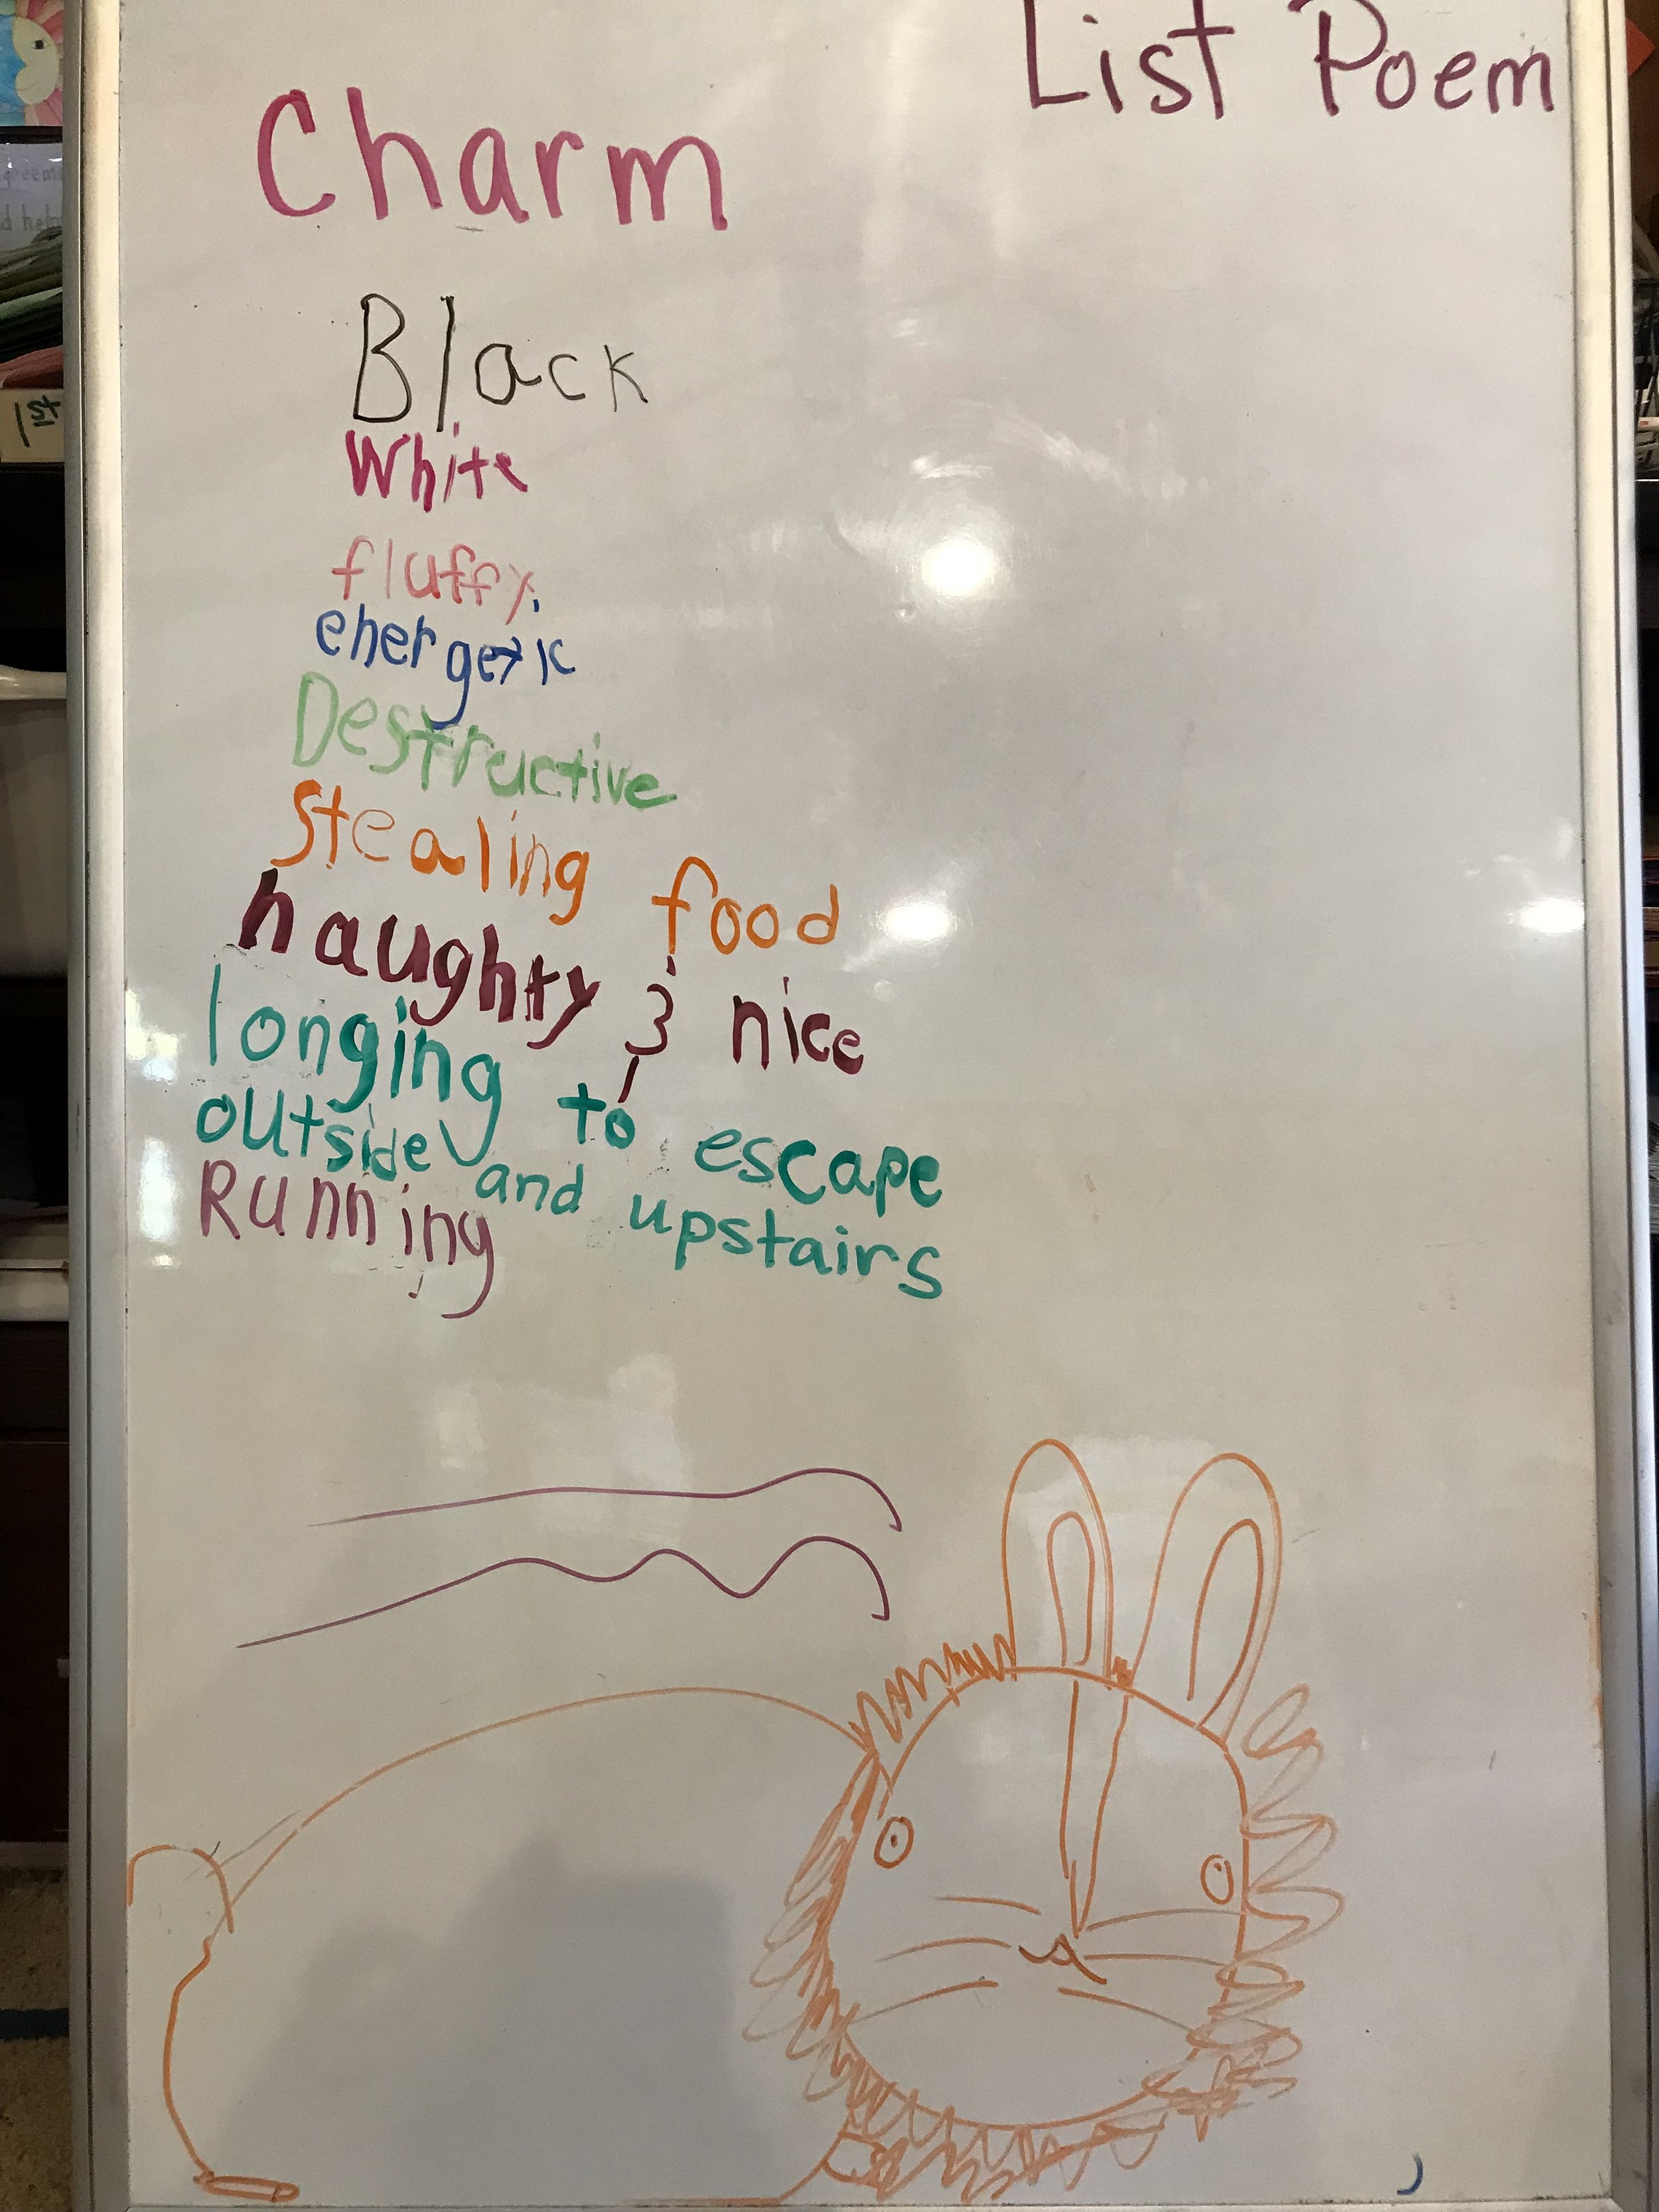 List Poem
Charm
Black
White
fluffy
energetic
Destructive
Stealing food
naughty & nice
longing to escape
outside and upstairs
Running
1st